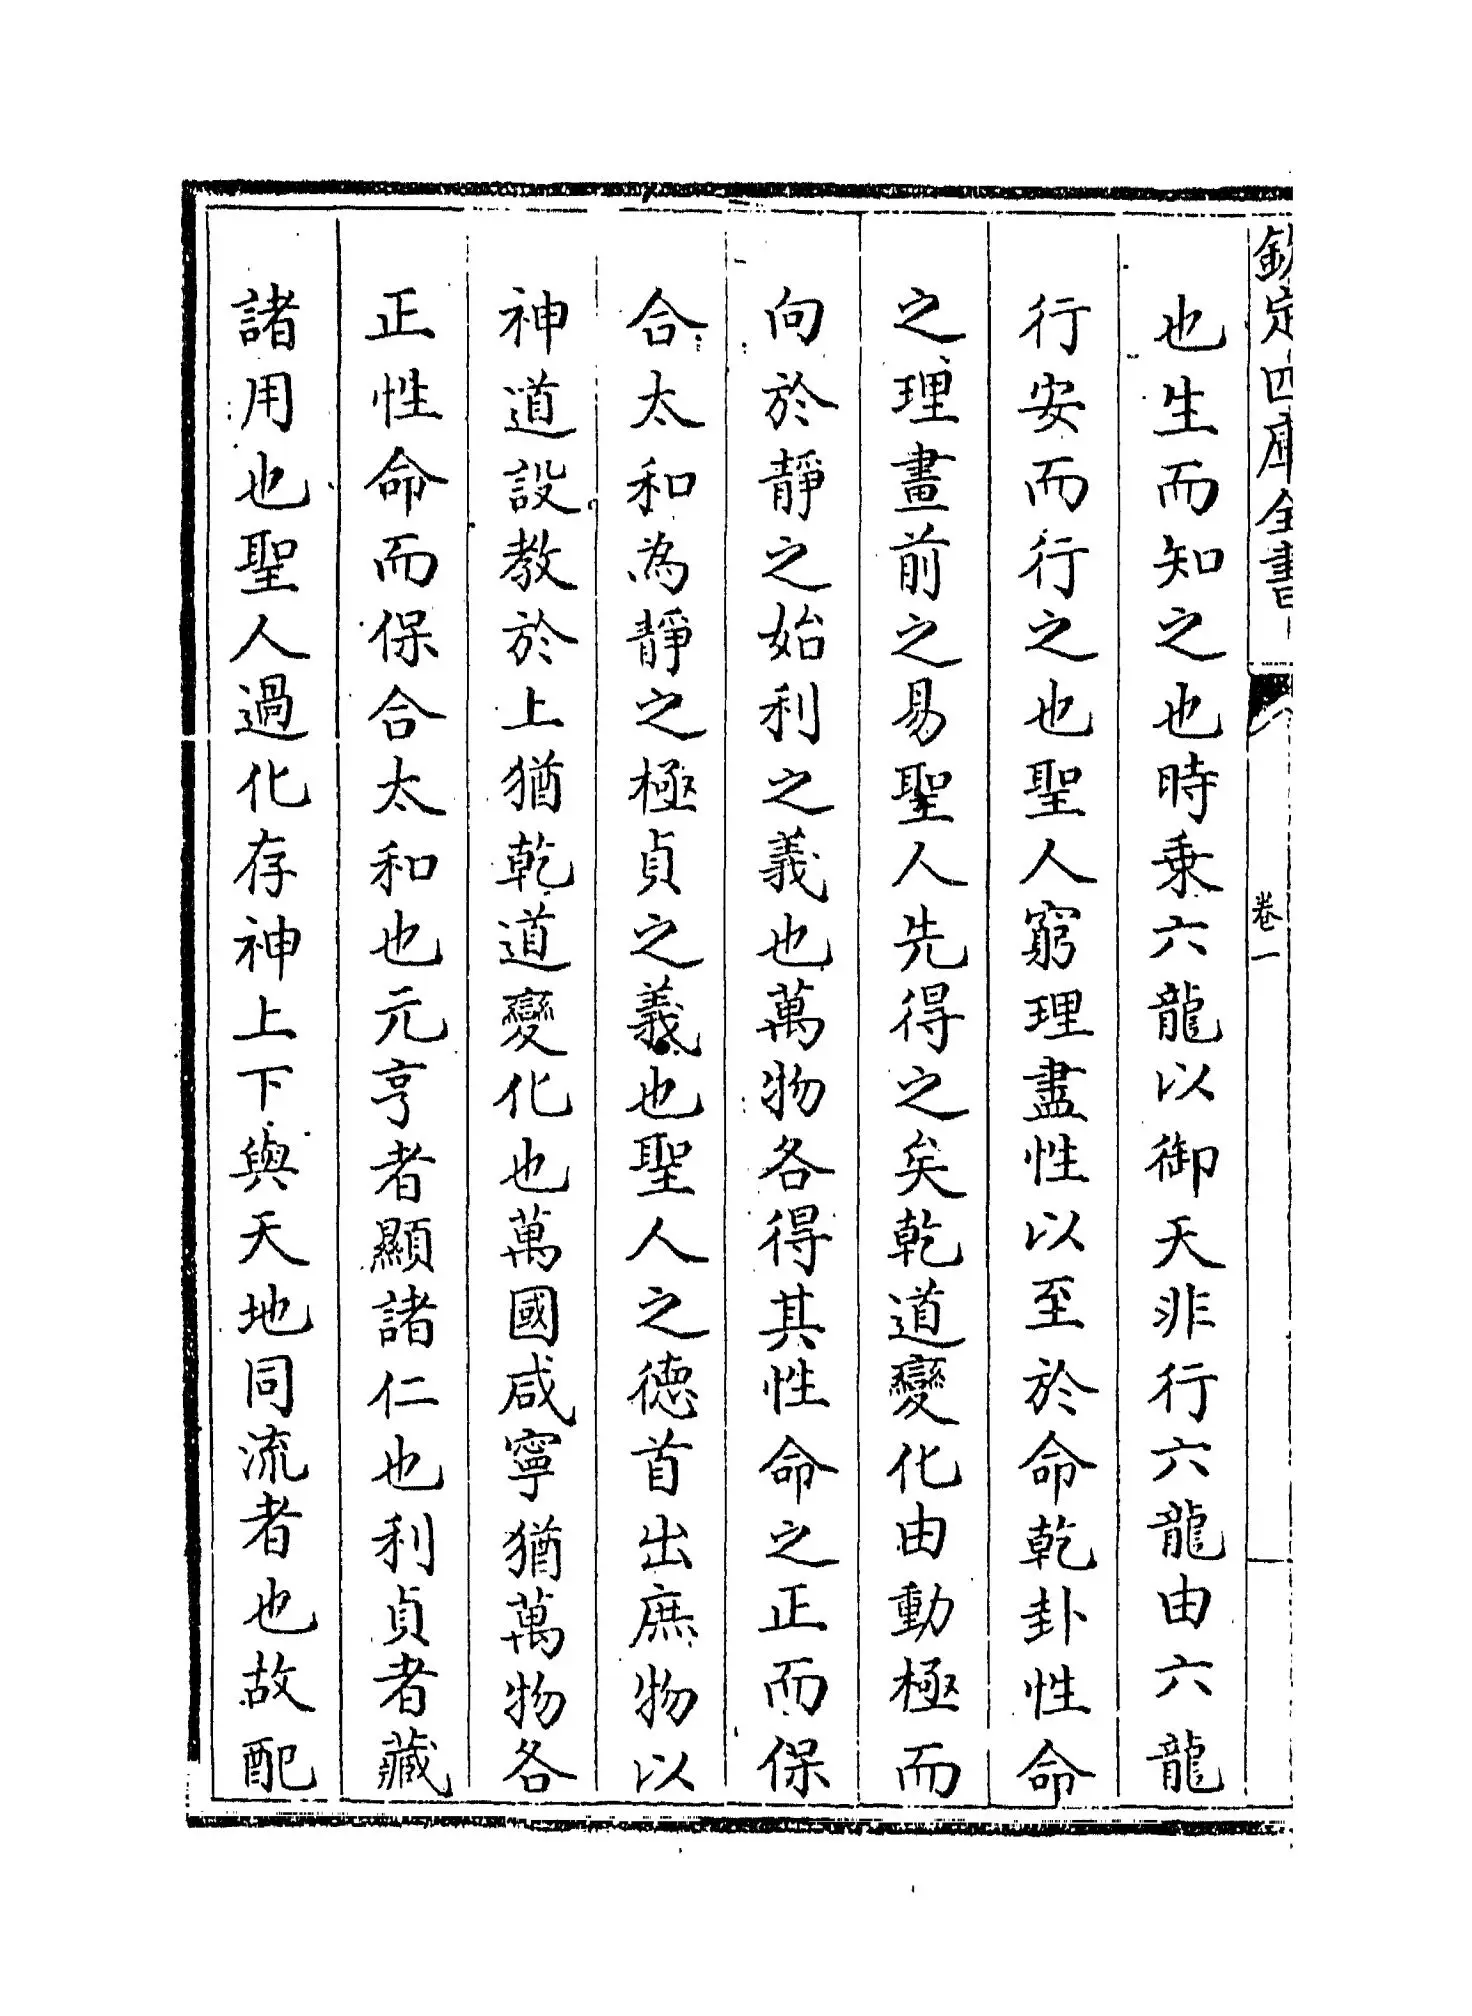 欽定四庫全書
卷一
也生而知之也時乗六龍以御天非行六龍由六龍
行安而行之也聖人窮理盡性以至於命乾卦性命
之理畫前之易聖人先得之矣乾道變化由動極而
向於靜之始利之義也萬物各得其性命之正而保
合太和為靜之極貞之義也聖人之德首出庶物以
神道設教於上猶乾道變化也萬國咸寧猶萬物各
正性命而保合太和也元亨者顯諸仁也利貞者藏
諸用也聖人過化存神上下與天地同流者也故配